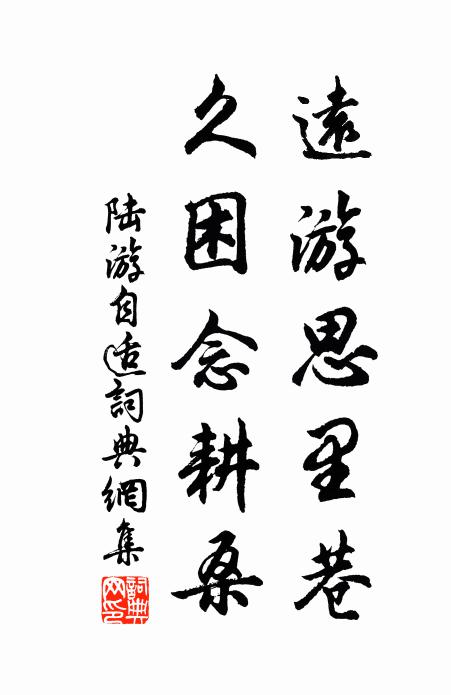 遠游思里巷
久困念耕桑
陆游自适詞典網集
詞典網印